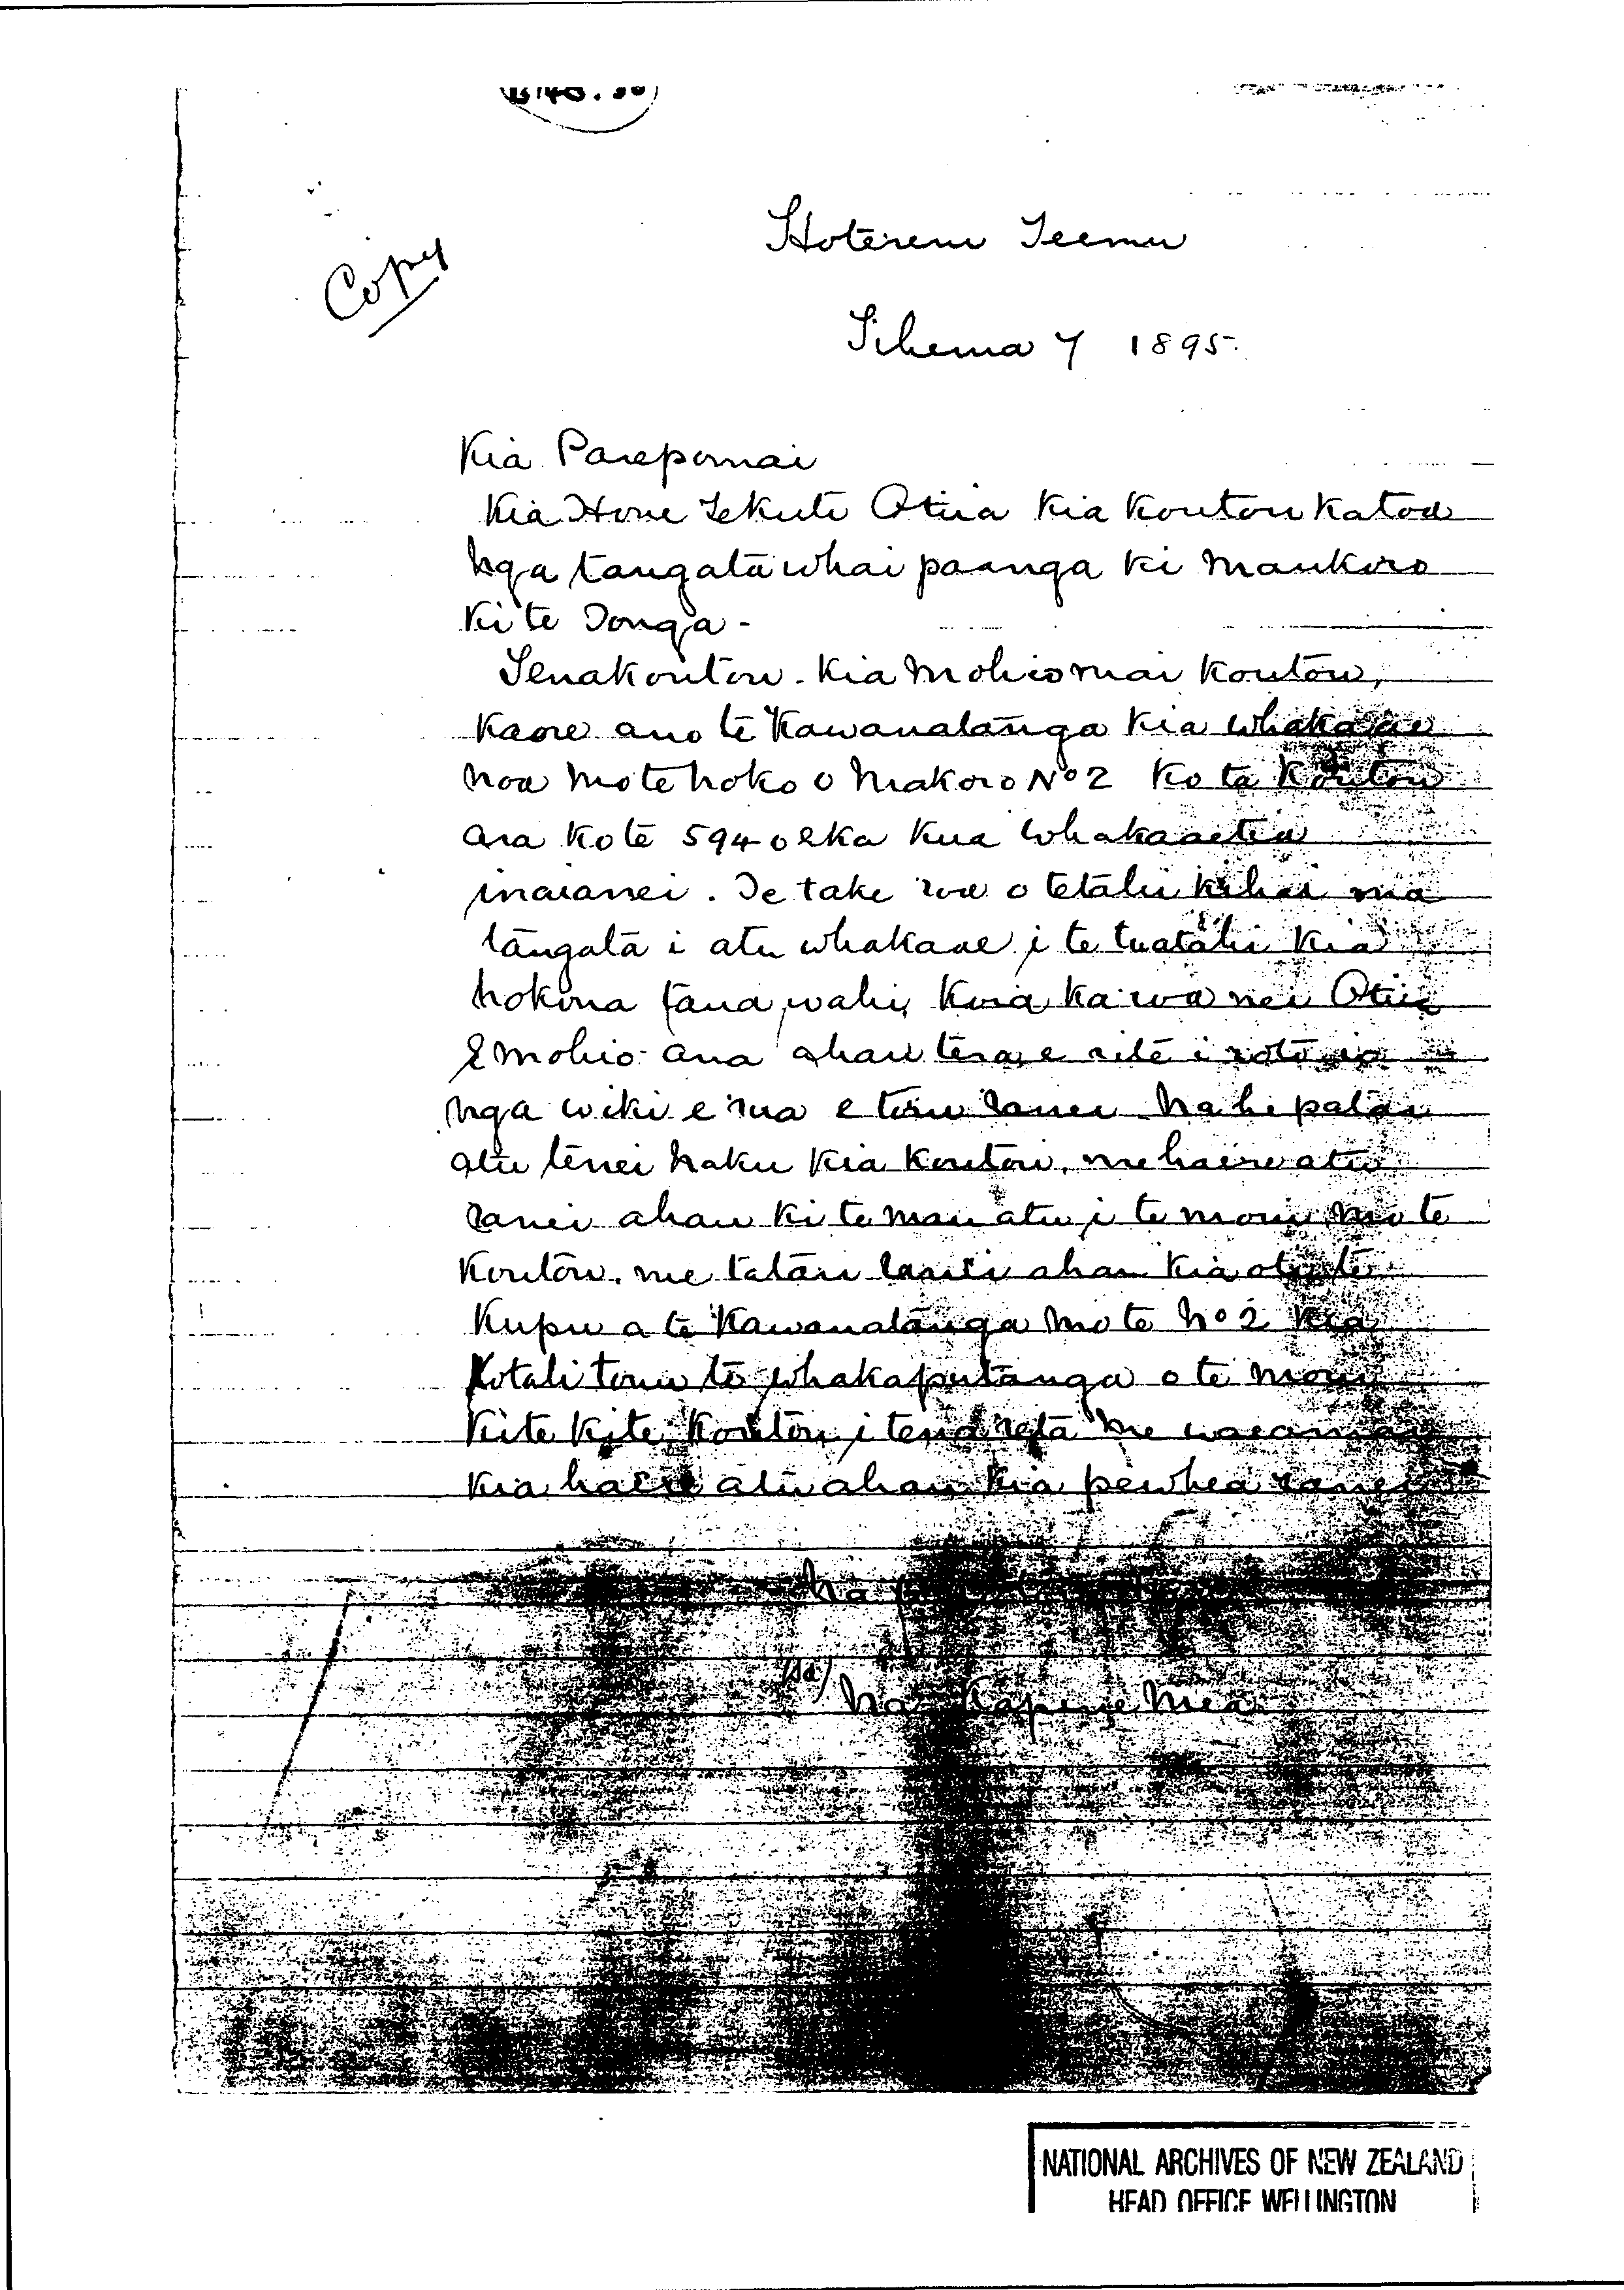 Hotereni Teemu
Copy
Tihema 7 1895.
Kia Parepomai
Kia Hone Tekuti Otiia Kia Koutou Katoa
Nga tangata whai paanga ki Maukoro
Ki te Tonga -
Tenakoutou. Kia Mohio mai Koutou,
Kaore ano te Kawanatanga Kia whakaae
noa mo te hoko o Makoro No 2 Ko ta Koutou
ara Ko te 594 o eka Kua Whakaaetia
inaianei. Te take roa o tetahi kihai ma
tangata i atu whakaae i te tuatahi Kia
hokona tana wahi, Kua Ka roa nei Otiia
E mohio ana ahau tera e rite i roto i
nga wiki e rua e toru ranei Na he patai
atu tenei naku Kia Koutou, me haere atu
ranei ahau Ki te mau atu i te moni mo te
Koutou. me tatari ranei ahau Kia oti te
Kupu a te Kawanatanga mo te No 2 Kia
Kotahi tonu te whakaputanga o te moni
Kite Kite Koutou i tena reta me waea mai
Kia haere atu ahau Kia pewhea ranei
Na
(Sd) Na Kapene Mea
NATIONAL ARCHIVES OF NEW ZEALAND
HEAD OFFICE WELLINGTON